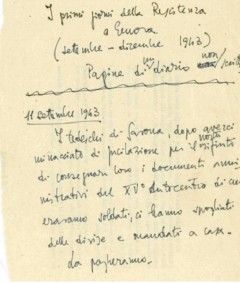 I primi giorni della Resistenza
a Genova
(settembre - dicembre 1943)
Pagine di un diario non
11 settembre 1943
I tedeschi di Savona, dopo averci
minacciato di fucilazione per il nostro rifiuto
di consegnar loro i documenti ammi
nistrativi del XV° Autocentro di cui
eravamo soldati, ci hanno spogliati
delle divise e mandati a casa.
La pagheranno.